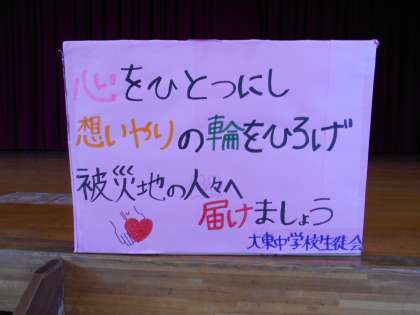 心をひとつにし
想いやりの輪をひろげ
被災地の人々へ
届けましょう
大東中学校生徒会